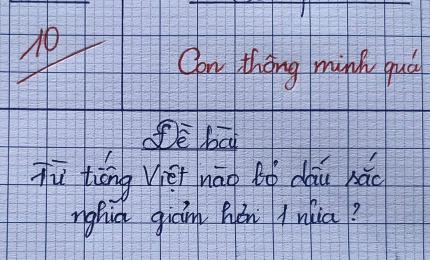 10
Con thông minh quá
Đề bài
Từ tiếng Việt nào bỏ dấu sắc
nghĩa giảm hơn 1 nửa?